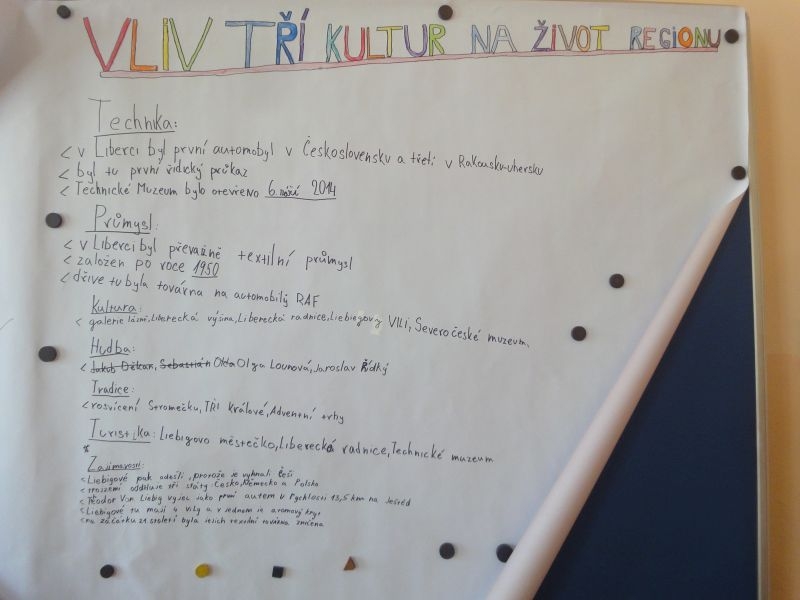 VLIV TŘÍ KULTUR NA ŽIVOT REGIONU
Technika:
< v Liberci byl první automobyl v Československu a třetí v Rakousku-uhersku
< byl tu první řidický průkaz
< Technické Muzeum bylo otevřeno 6. září 2014
Průmysl:
< v Liberci byl převážně textilní průmysl
< založen po roce 1950
< dříve tu byla továrna na automobily RAF
Kultura:
< galerie lázně, Liberecká výšina, Liberecká radnice, Liebiegovy VILI, Severočeské muzeum.
Hudba:
< Jakub Děkan, Sebastián Olga Lounová, Jaroslav Řídký
Tradice:
< rosvícení Stromečku, Tři Králové, Adventní trhy
Turistika: Liebigovo městečko, Liberecká radnice, Technické muzeum
Zajímavosti:
< Liebigové pak odešli, protože je vyhnali Češi
< trojzemí odděluje tři státy: Česko, Německo a Polsko
< Teodor Von Liebig vyjel jako první autem v rychlosti 13,5 km na Ještěd
< Liebigové tu mají 4 vily a v jednom je atomový kryt
< na začátku 21 století byla jejich textilní továrna zničena